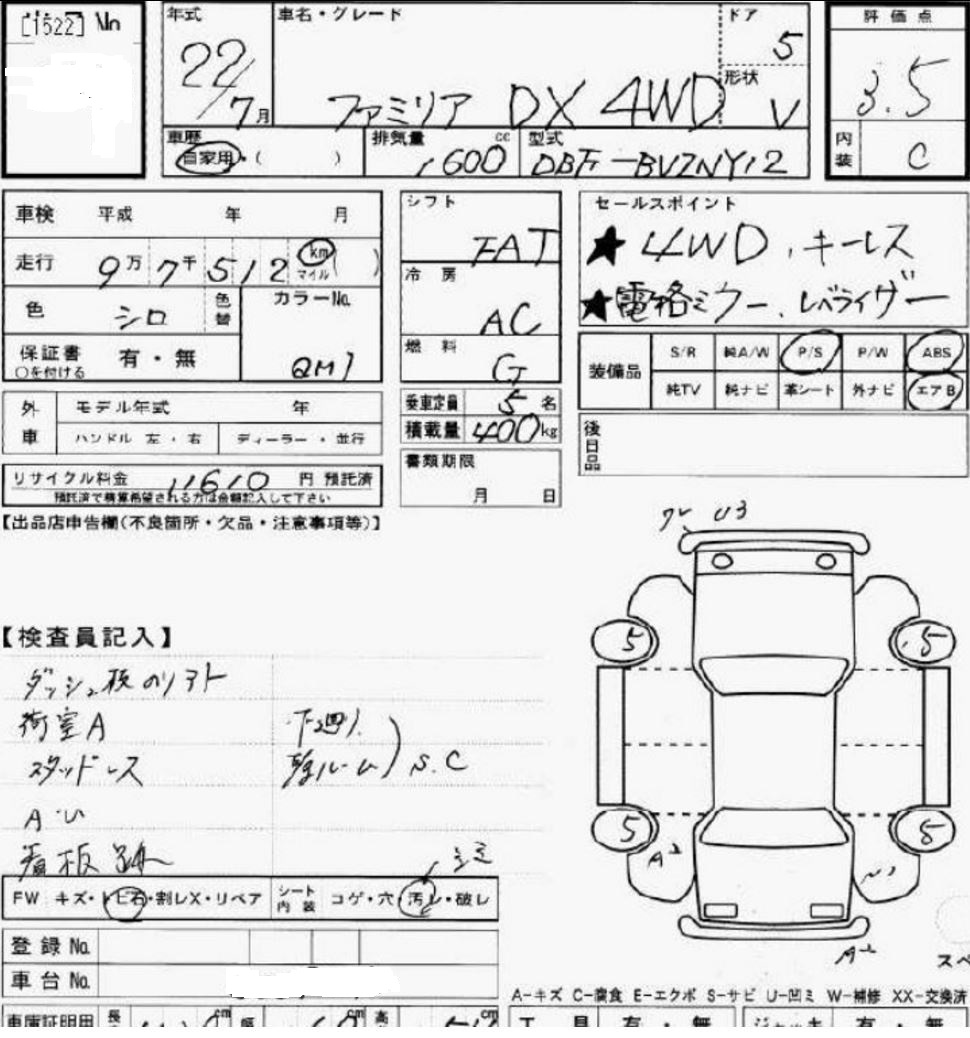 [1522] No
年式 22/7月
車名・グレード ファミリア DX 4WD
ドア 5
形状 V
評価点 3.5
内装 C
車歴 自家用・( )
排気量 1600 cc
型式 DBF-BVZNY12
車検 平成 年 月
走行 9万7千512 km マイル ( )
色 シロ 色替
カラーNo. QM1
保証書 ○を付ける 有・無
外車 モデル年式 年
ハンドル 左・右 ディーラー・並行
リサイクル料金 11610 円 預託済
預託済で精算希望される方は金額記入して下さい
シフト FAT
冷房 AC
燃料 G
乗車定員 5名
積載量 400kg
書類期限
月 日
セールスポイント
★4WD、キーレス
★電格ミラー、レベライザー
装備品 S/R 純A/W P/S P/W ABS
純TV 純ナビ 革シート 外ナビ エアB
後日品
【出品店申告欄(不良箇所・欠品・注意事項等)】
【検査員記入】
荷室A 下廻り
スタッドレス S.C
A・U
看板
U3
5 5
5 5
FW キズ・トビ石・割レX・リペア シート内装 コゲ・穴・汚レ・破レ
シミ
登録No.
車台No.
A-キズ C-腐食 E-エクボ S-サビ U-凹ミ W-補修 XX-交換済
車庫証明用 長 cm 幅 cm 高 cm
工具 有・無 ジャッキ 有・無